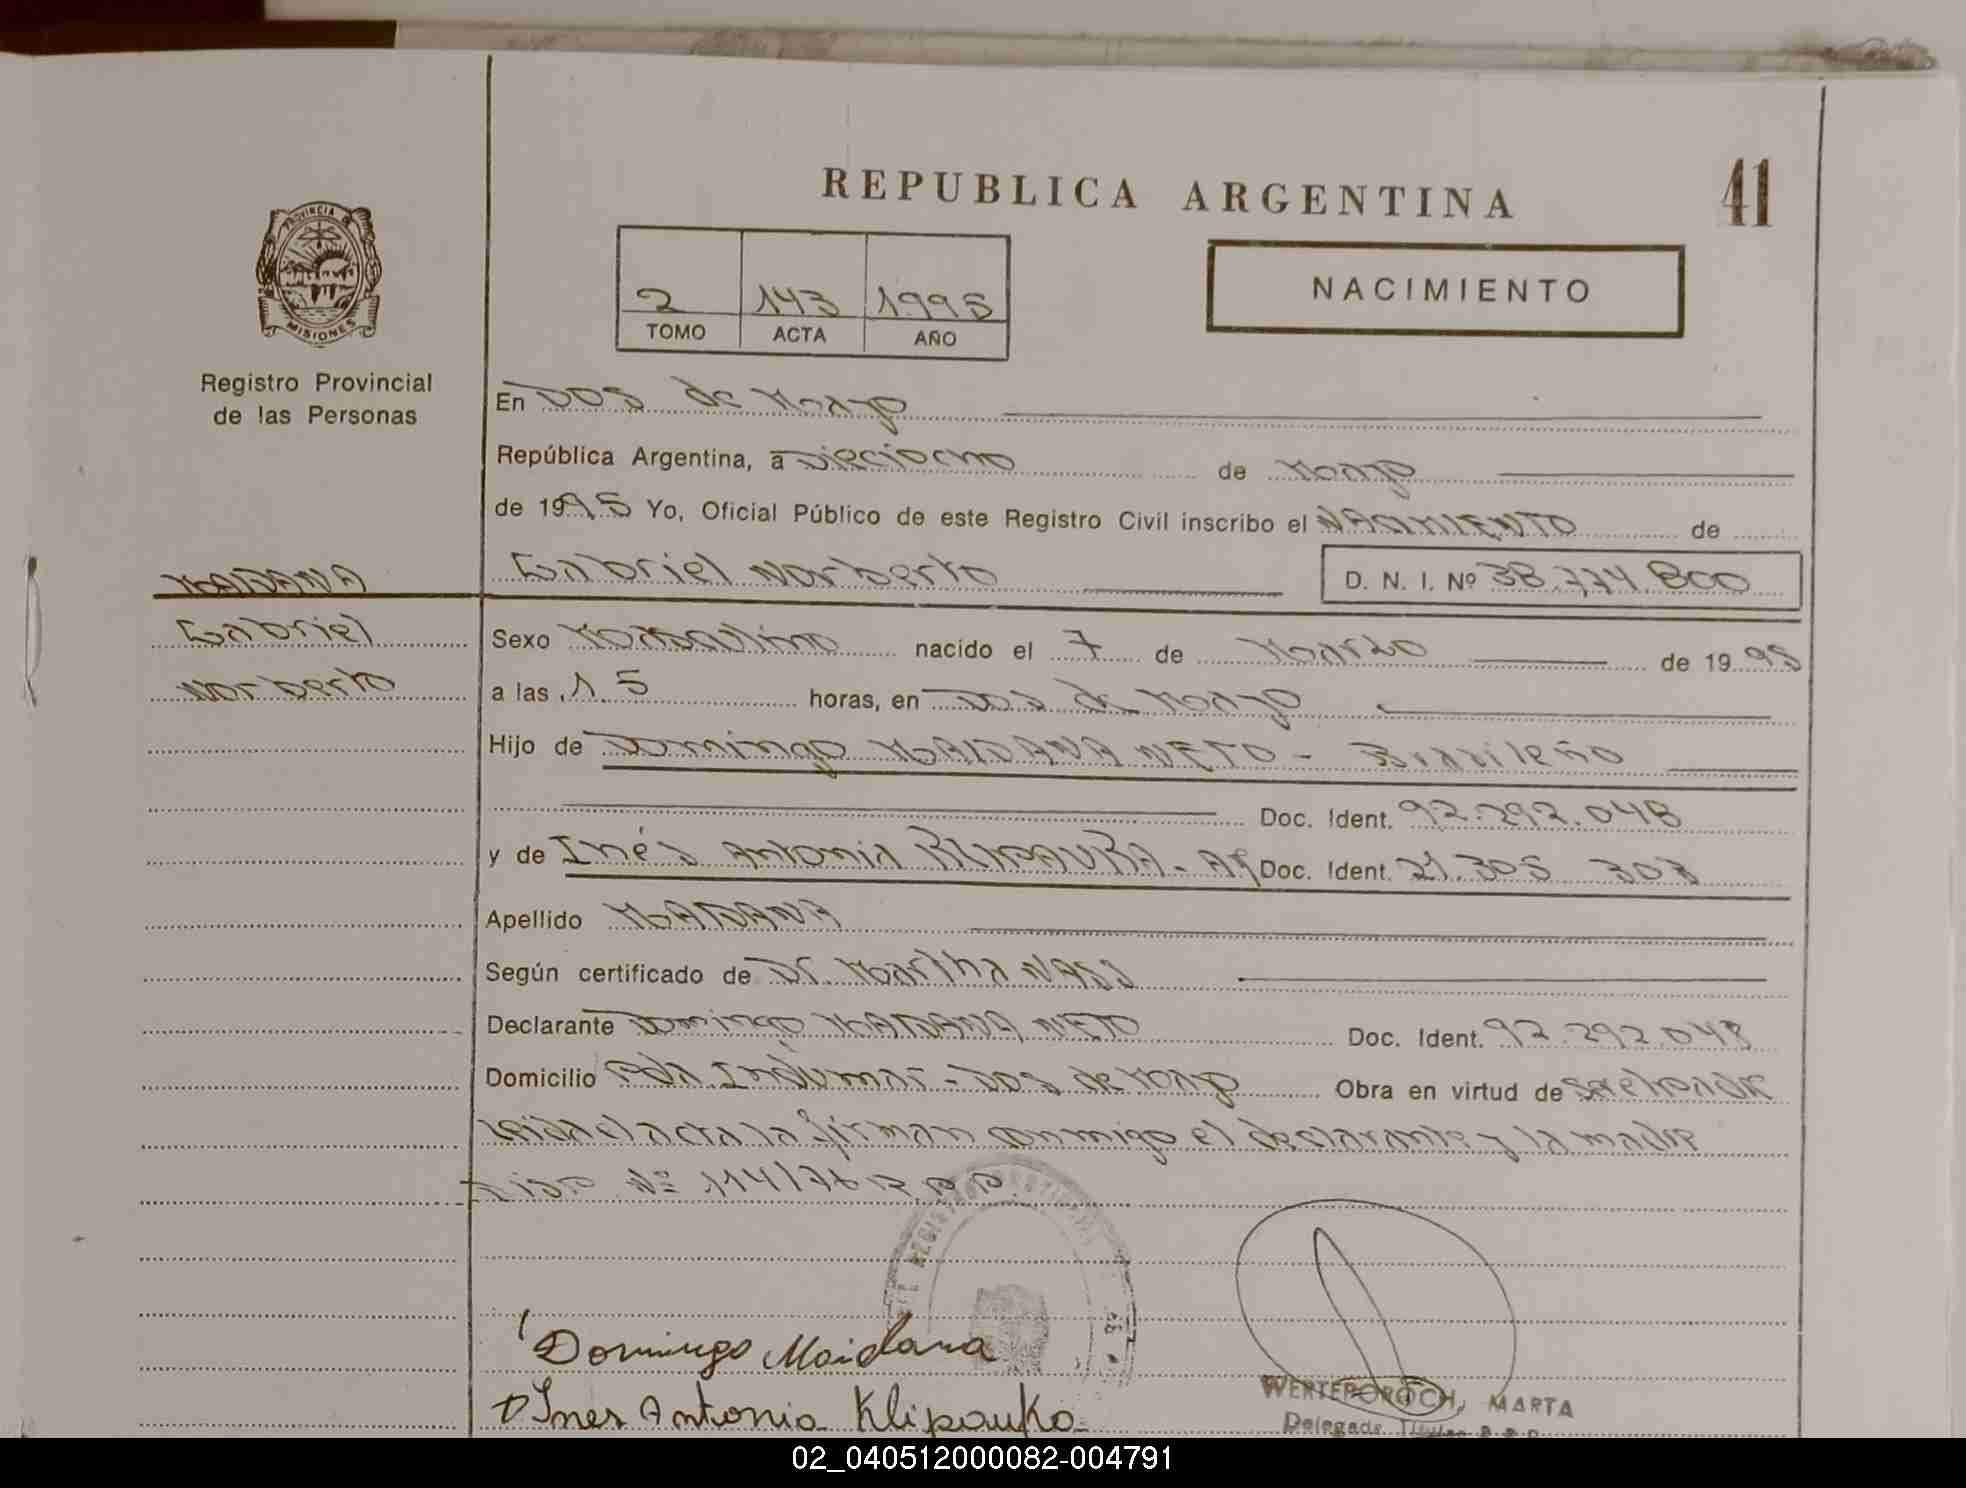 REPUBLICA ARGENTINA
41
PROVINCIA DE
MISIONES
Registro Provincial
de las Personas
2 143 1995
TOMO ACTA AÑO
NACIMIENTO
En Dos de Mayo
República Argentina, a Dieciocho de Mayo
de 1995 Yo, Oficial Público de este Registro Civil inscribo el NACIMIENTO de
MAIDANA
Gabriel
Norberto
Gabriel Norberto D. N. I. Nº 38.774.800
Sexo Masculino nacido el 7 de Marzo de 1995
a las 15 horas, en Dos de Mayo
Hijo de Domingo MAIDANA NETO - Brasileño
Doc. Ident. 92.292.048
y de Inés Antonia KLIPAUKA - Ar Doc. Ident. 21.305 303
Apellido MAIDANA
Según certificado de Dr. Martha NASS
Declarante Domingo MAIDANA NETO Doc. Ident. 92.292.048
Domicilio Pda. Indumar - Dos de Mayo Obra en virtud de
Leida el acta la firman conmigo el declarante y la madre
Disp. Nº 114/76 R.P.P.
Domingo Maidana
Ines Antonia Klipauka
WERTEPOROCH, MARTA
Delegada Titular R.P.P.
02_040512000082-004791